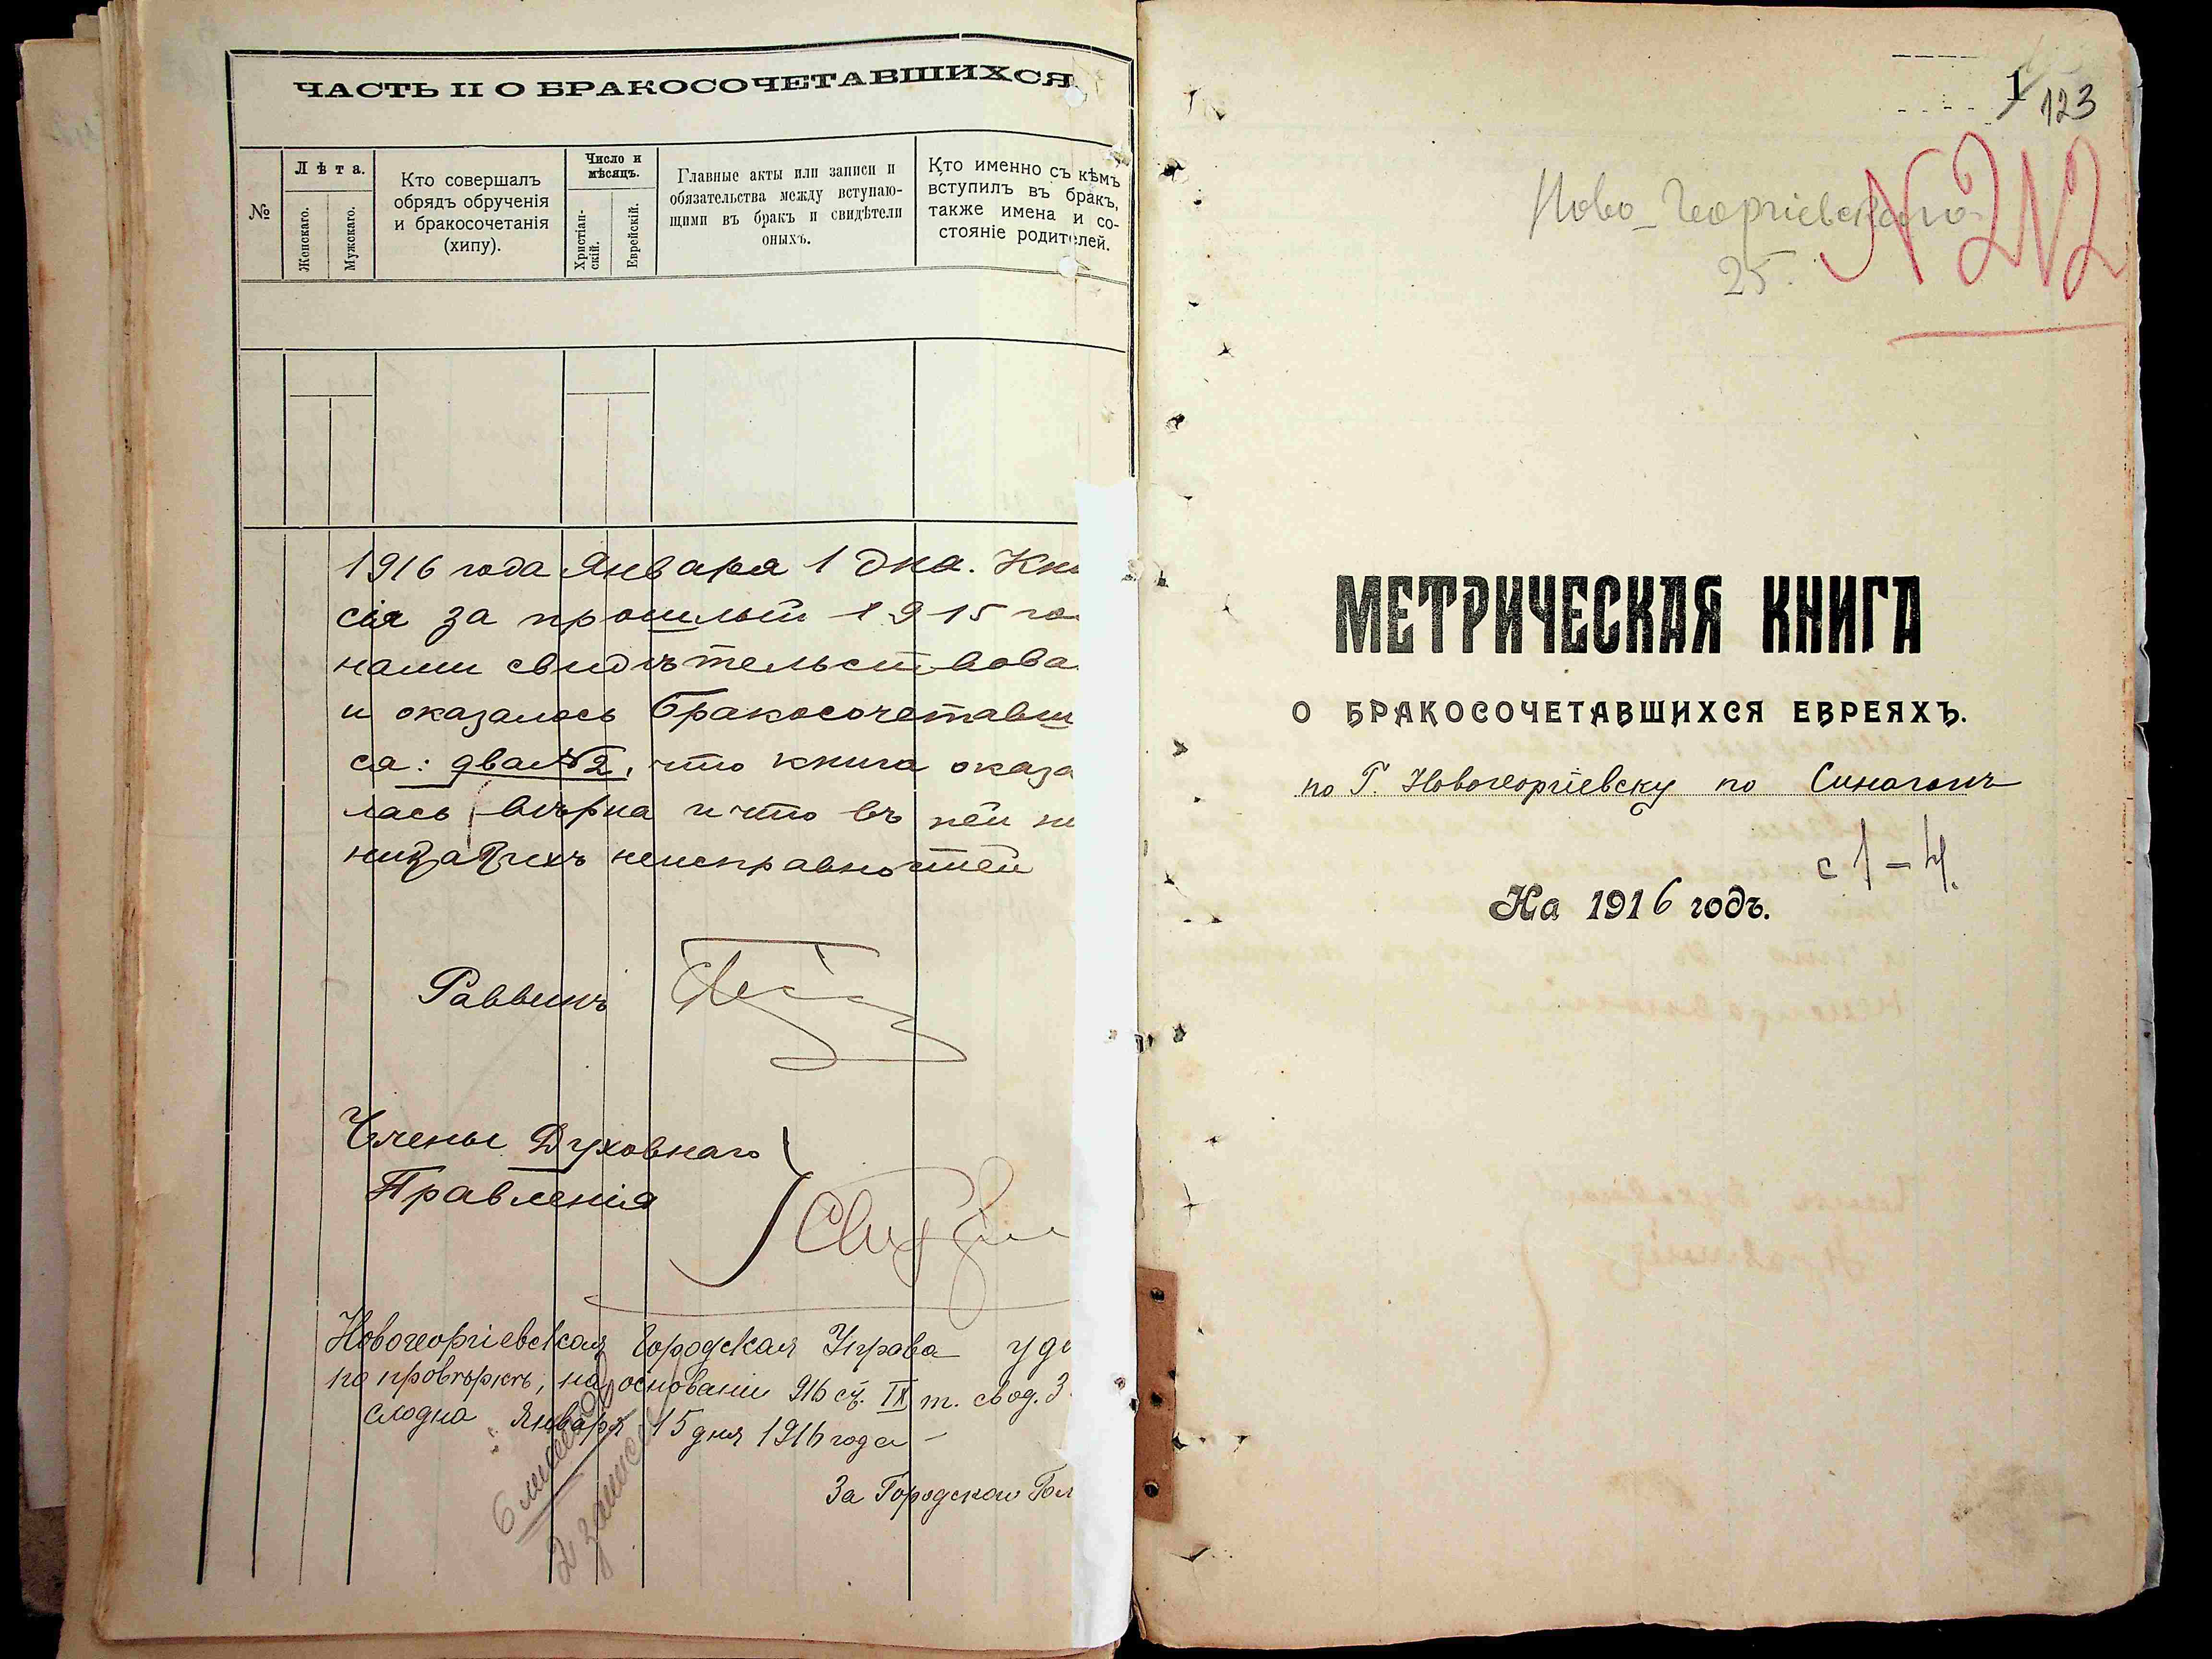 ЧАСТЬ II О БРАКОСОЧЕТАВШИХСЯ
№
Лѣта.
Женскаго.
Мужокаго.
Кто совершалъ
обрядъ обрученія
и бракосочетанія
(хипу).
Число и
мѣсяцъ.
Христіан-
скій.
Еврейскій.
Главные акты или записи и
обязательства между вступаю-
щими въ бракъ и свидѣтели
оныхъ.
Кто именно съ кѣмъ
вступилъ въ бракъ,
также имена и со-
стояніе родителей.
1916 года Января 1 дня. Кни
сія за прошлый 1915 го
нами свидѣтельствова
и оказалось бракосочетавши
ся: два №2, что книга оказа
лась вѣрна и что въ ней ни
неисправностей
Раввинъ
Члены Духовнаго
Правленія
Новогеоргіевская Городская Управа удо
по провѣркѣ, на основаніи 916 ст. IX т. свод. З
Января 15 дня 1916 года
За Городского Гол
6 листовъ
2 записи
1
123
Ново-Георгіевскаго
25.
N 2 N 2
МЕТРИЧЕСКАЯ КНИГА
О БРАКОСОЧЕТАВШИХСЯ ЕВРЕЯХЪ.
по Г. Новогеоргіевску по Синагогѣ
с 1-4.
На 1916 годъ.